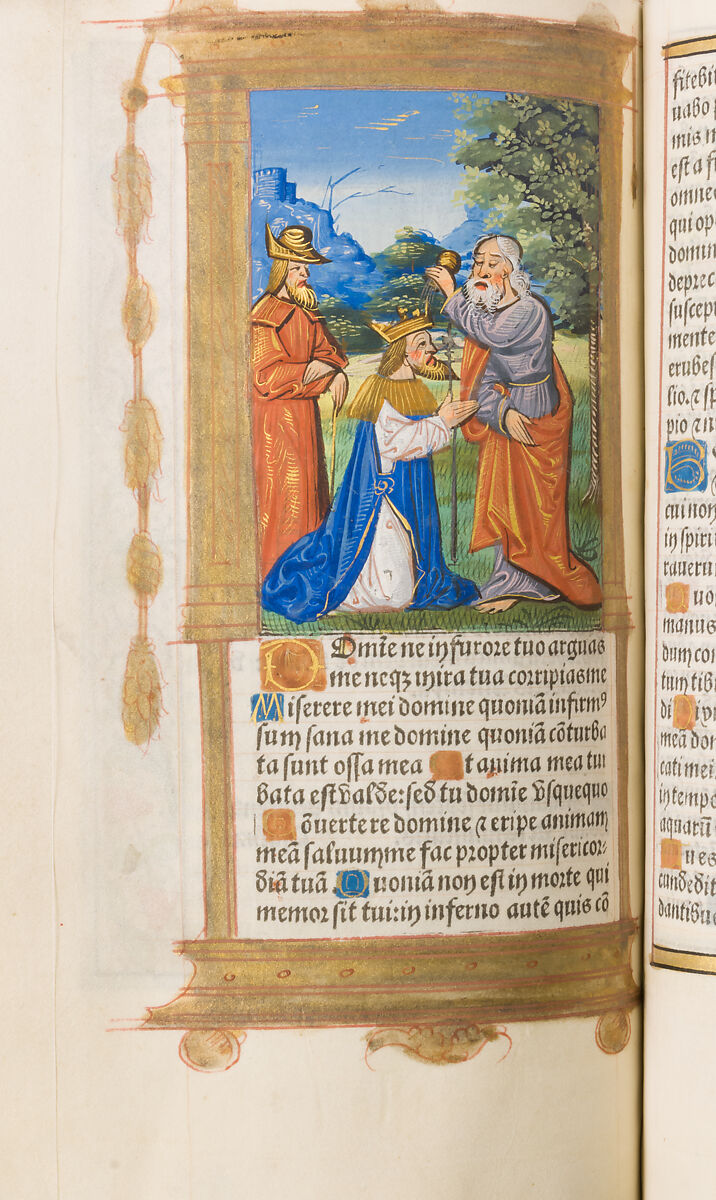 Dm̄e ne in furore tuo arguas
me neqꝫ in ira tua corripias me
Miserere mei domine quoniā infirmꝰ
sum sana me domine quoniā cōturba
ta sunt ossa mea Et anima mea tur
bata est valde: sed tu domīe vsquequo
Cōuertere domine ⁊ eripe animam
meā saluum me fac propter misericor-
diā tuā. Quoniā non est in morte qui
memor sit tui: in inferno autē quis cō
fitebi
uabo
mis
est a f
omne
qui op
domin
deprec
suscep
mente
erubes
lio. ⁊ sp
pio ⁊ n
cui non
in spiri
rauerū
Quo
manus
dum con
tum tib
di
meā don
cati mei
in tempo
aquarū
ues
cund edit
dantibus